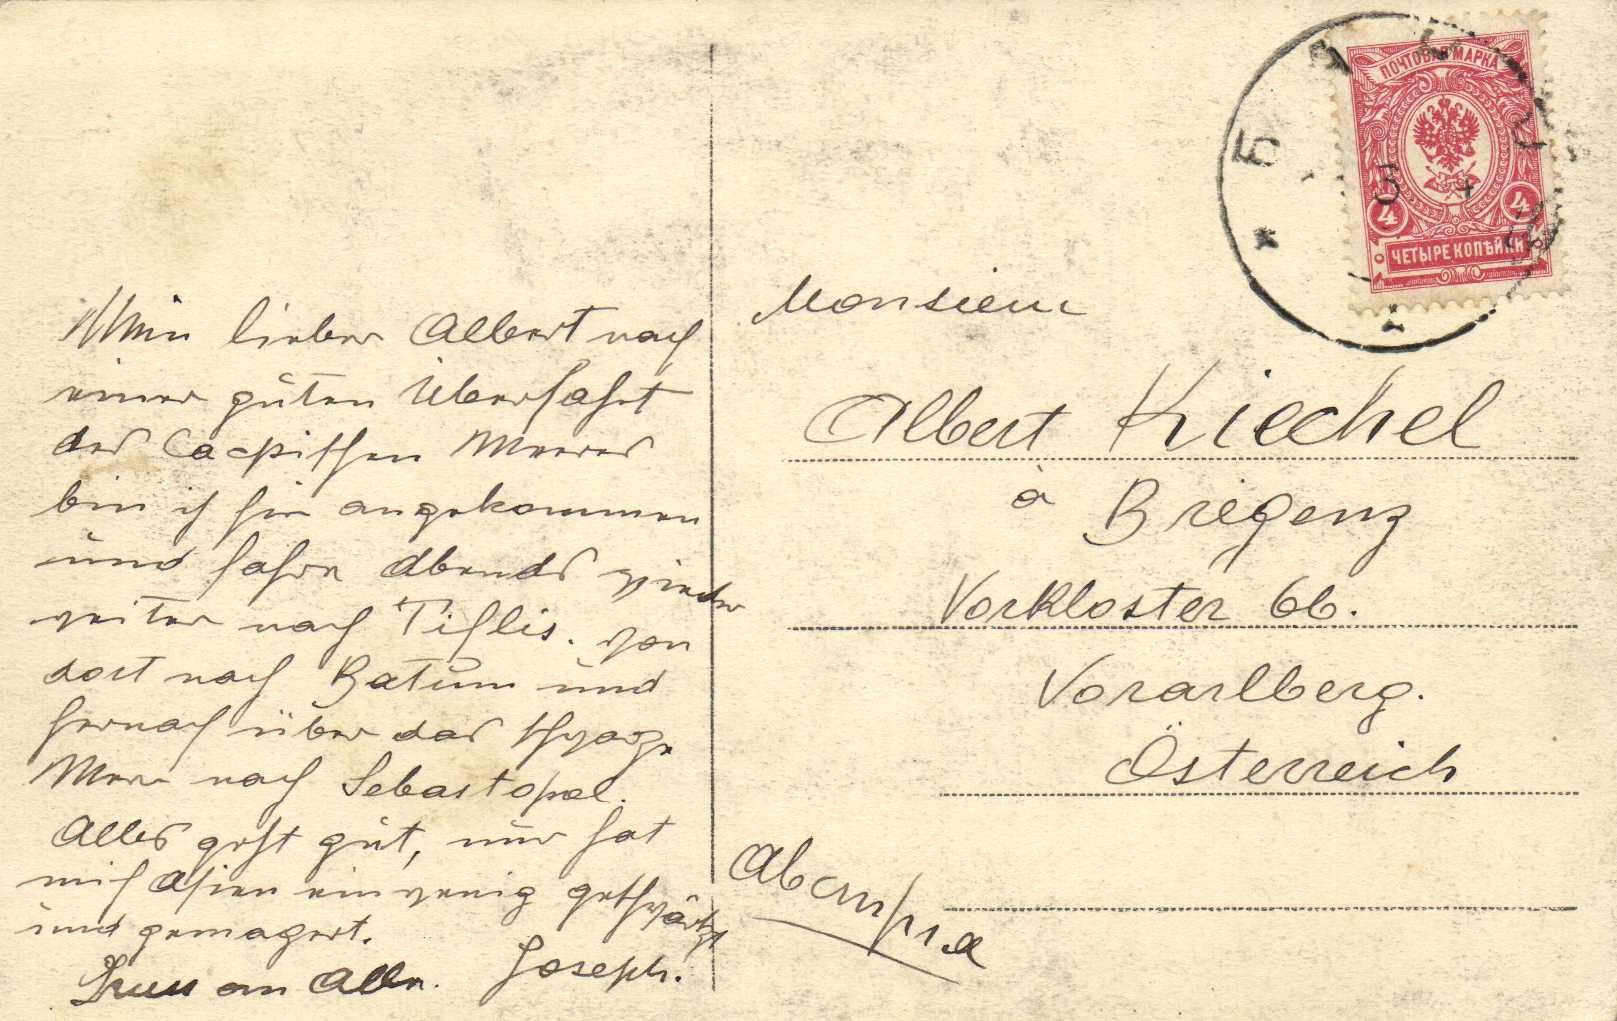 Mein lieber Albert nach
einer guten Überfahrt
des Caspischen Meeres
bin ich hier angekommen
und fahre Abends wieder
weiter nach Tiflis. von
dort nach Batum und
hernach über das schwarze
Meer nach Sebastopol.
Alles geht gut, nur hat
mich Asien ein wenig geschwärzt
und gemagert.
Gruss an Alle. Joseph.
ПОЧТОВАЯ МАРКА
4 4
ЧЕТЫРЕ КОПѢЙКИ
Monsieur
Albert Kiechel
à Bregenz
Vorkloster 66.
Vorarlberg.
Österreich